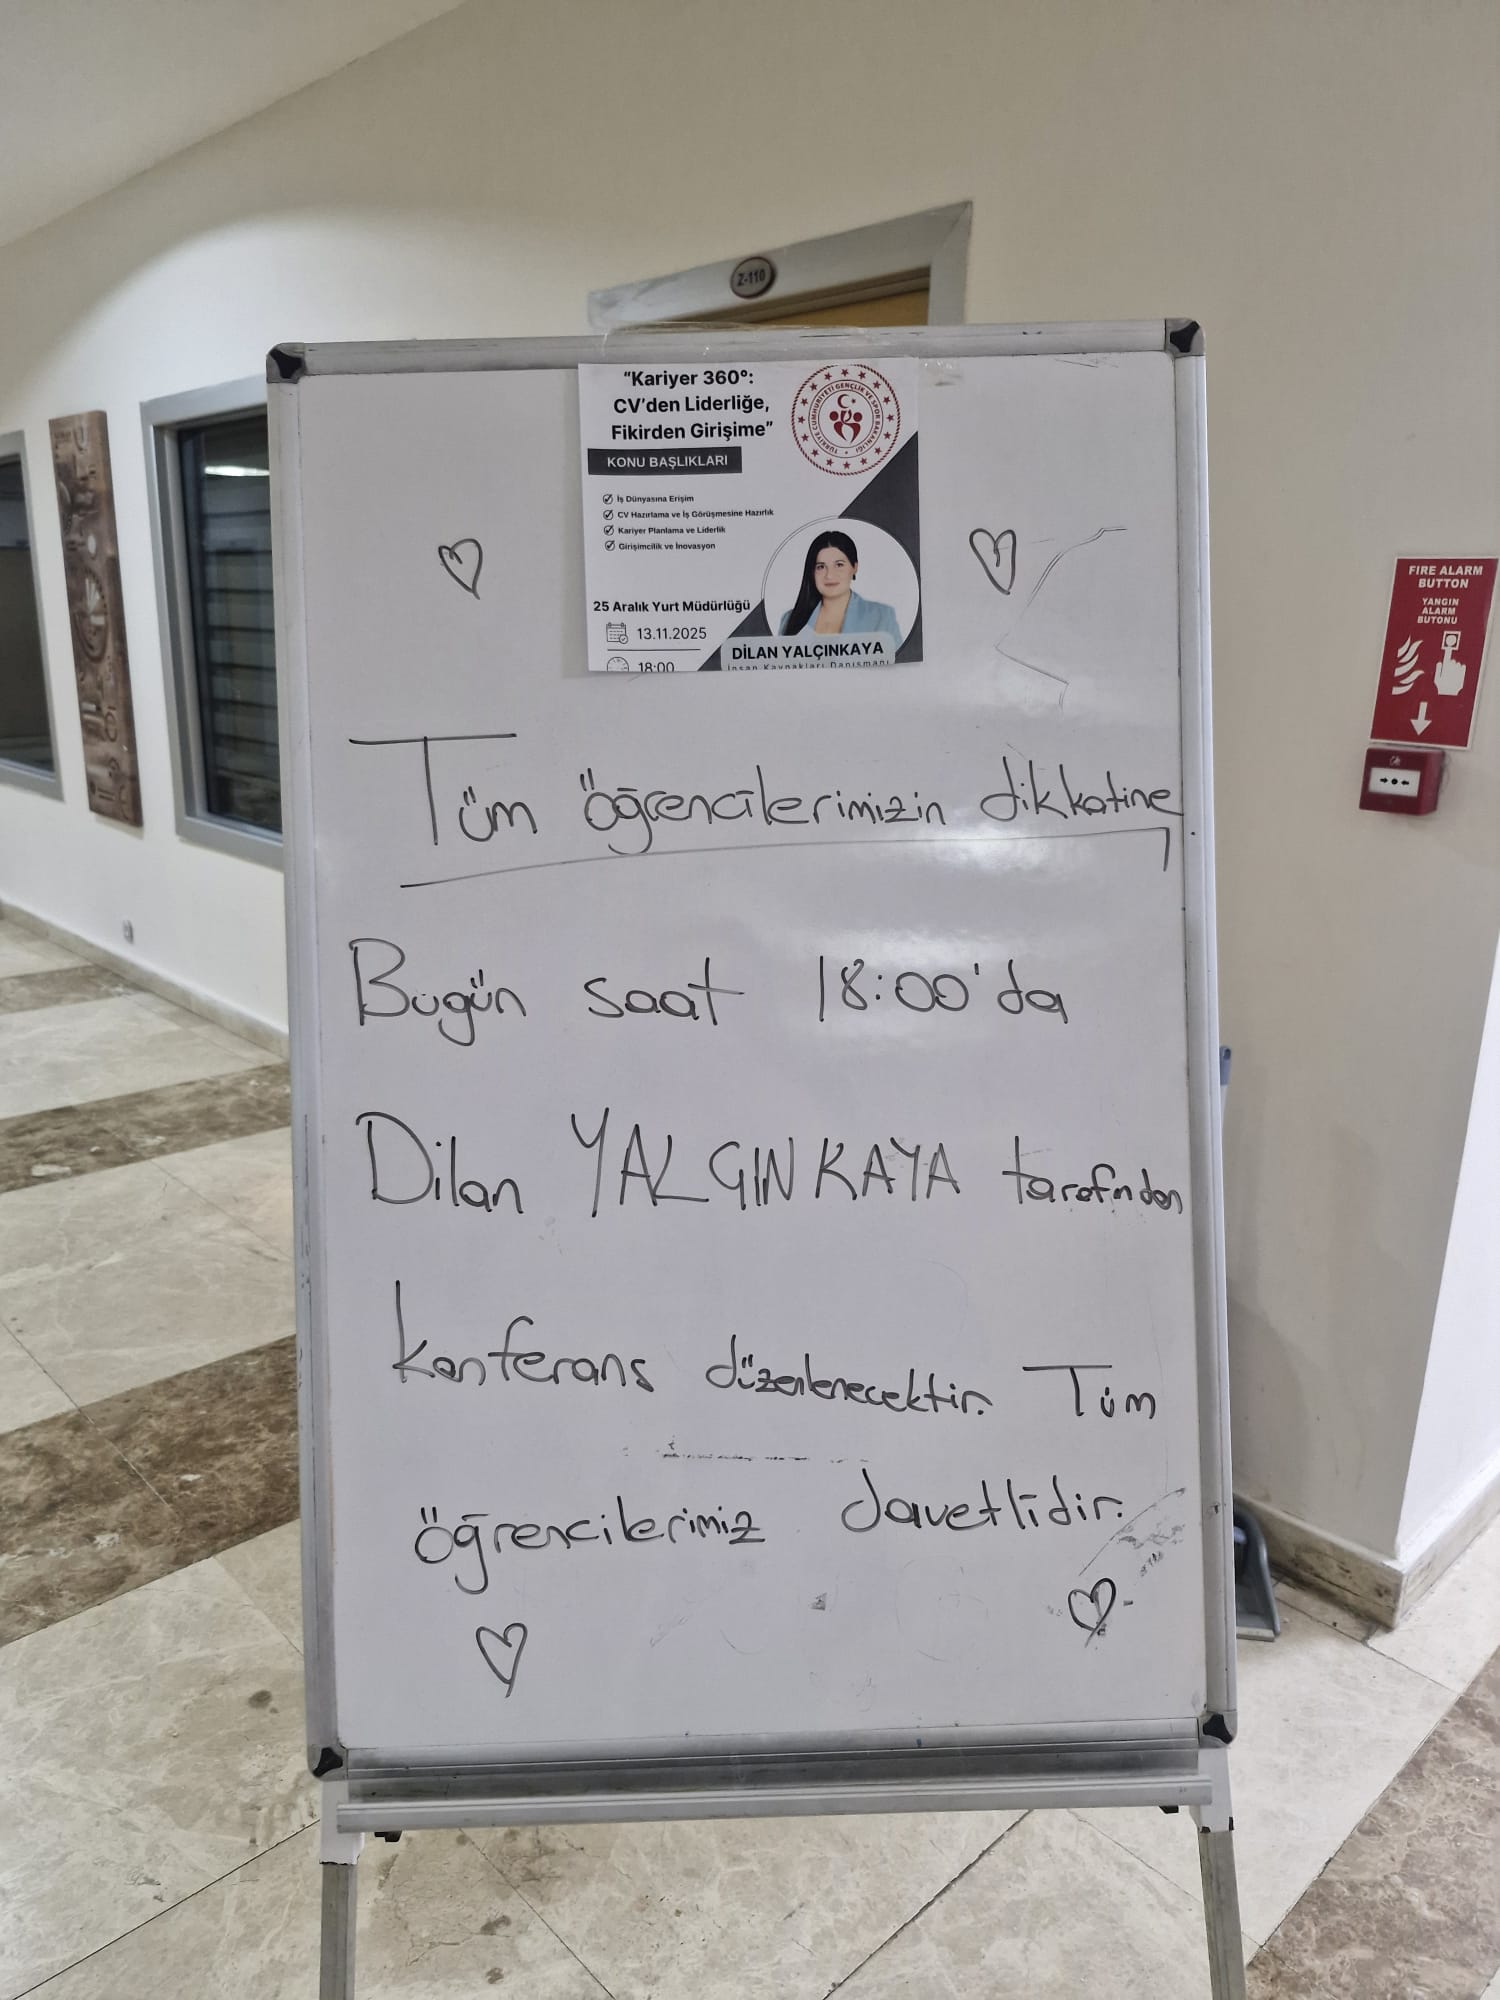 Z-110
"Kariyer 360°:
CV'den Liderliğe,
Fikirden Girişime"
TÜRKİYE CUMHURİYETİ GENÇLİK VE SPOR BAKANLIĞI
KONU BAŞLIKLARI
İş Dünyasına Erişim
CV Hazırlama ve İş Görüşmesine Hazırlık
Kariyer Planlama ve Liderlik
Girişimcilik ve İnovasyon
25 Aralık Yurt Müdürlüğü
13.11.2025
18:00
DİLAN YALÇINKAYA
İnsan Kaynakları Danışmanı
Tüm öğrencilerimizin dikkatine
Bugün saat 18:00'da
Dilan YALÇINKAYA tarafından
konferans düzenlenecektir. Tüm
öğrencilerimiz davetlidir.
FIRE ALARM
BUTTON
YANGIN
ALARM
BUTONU